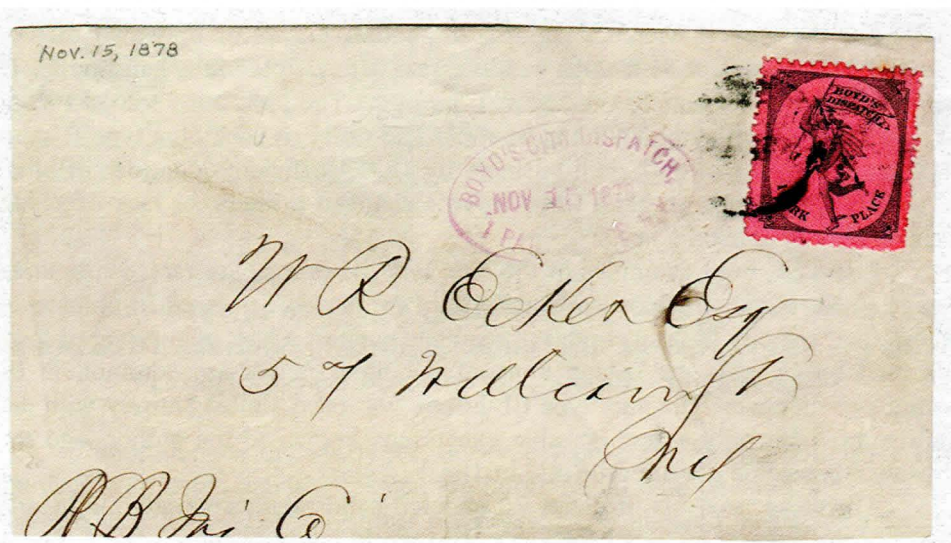 Nov. 15, 1878
BOYD'S DISPATCH
PARK PLACE
BOYD'S CITY DISPATCH,
NOV 15 1878
1 P
W R Ecker Esq
57 William St
NY